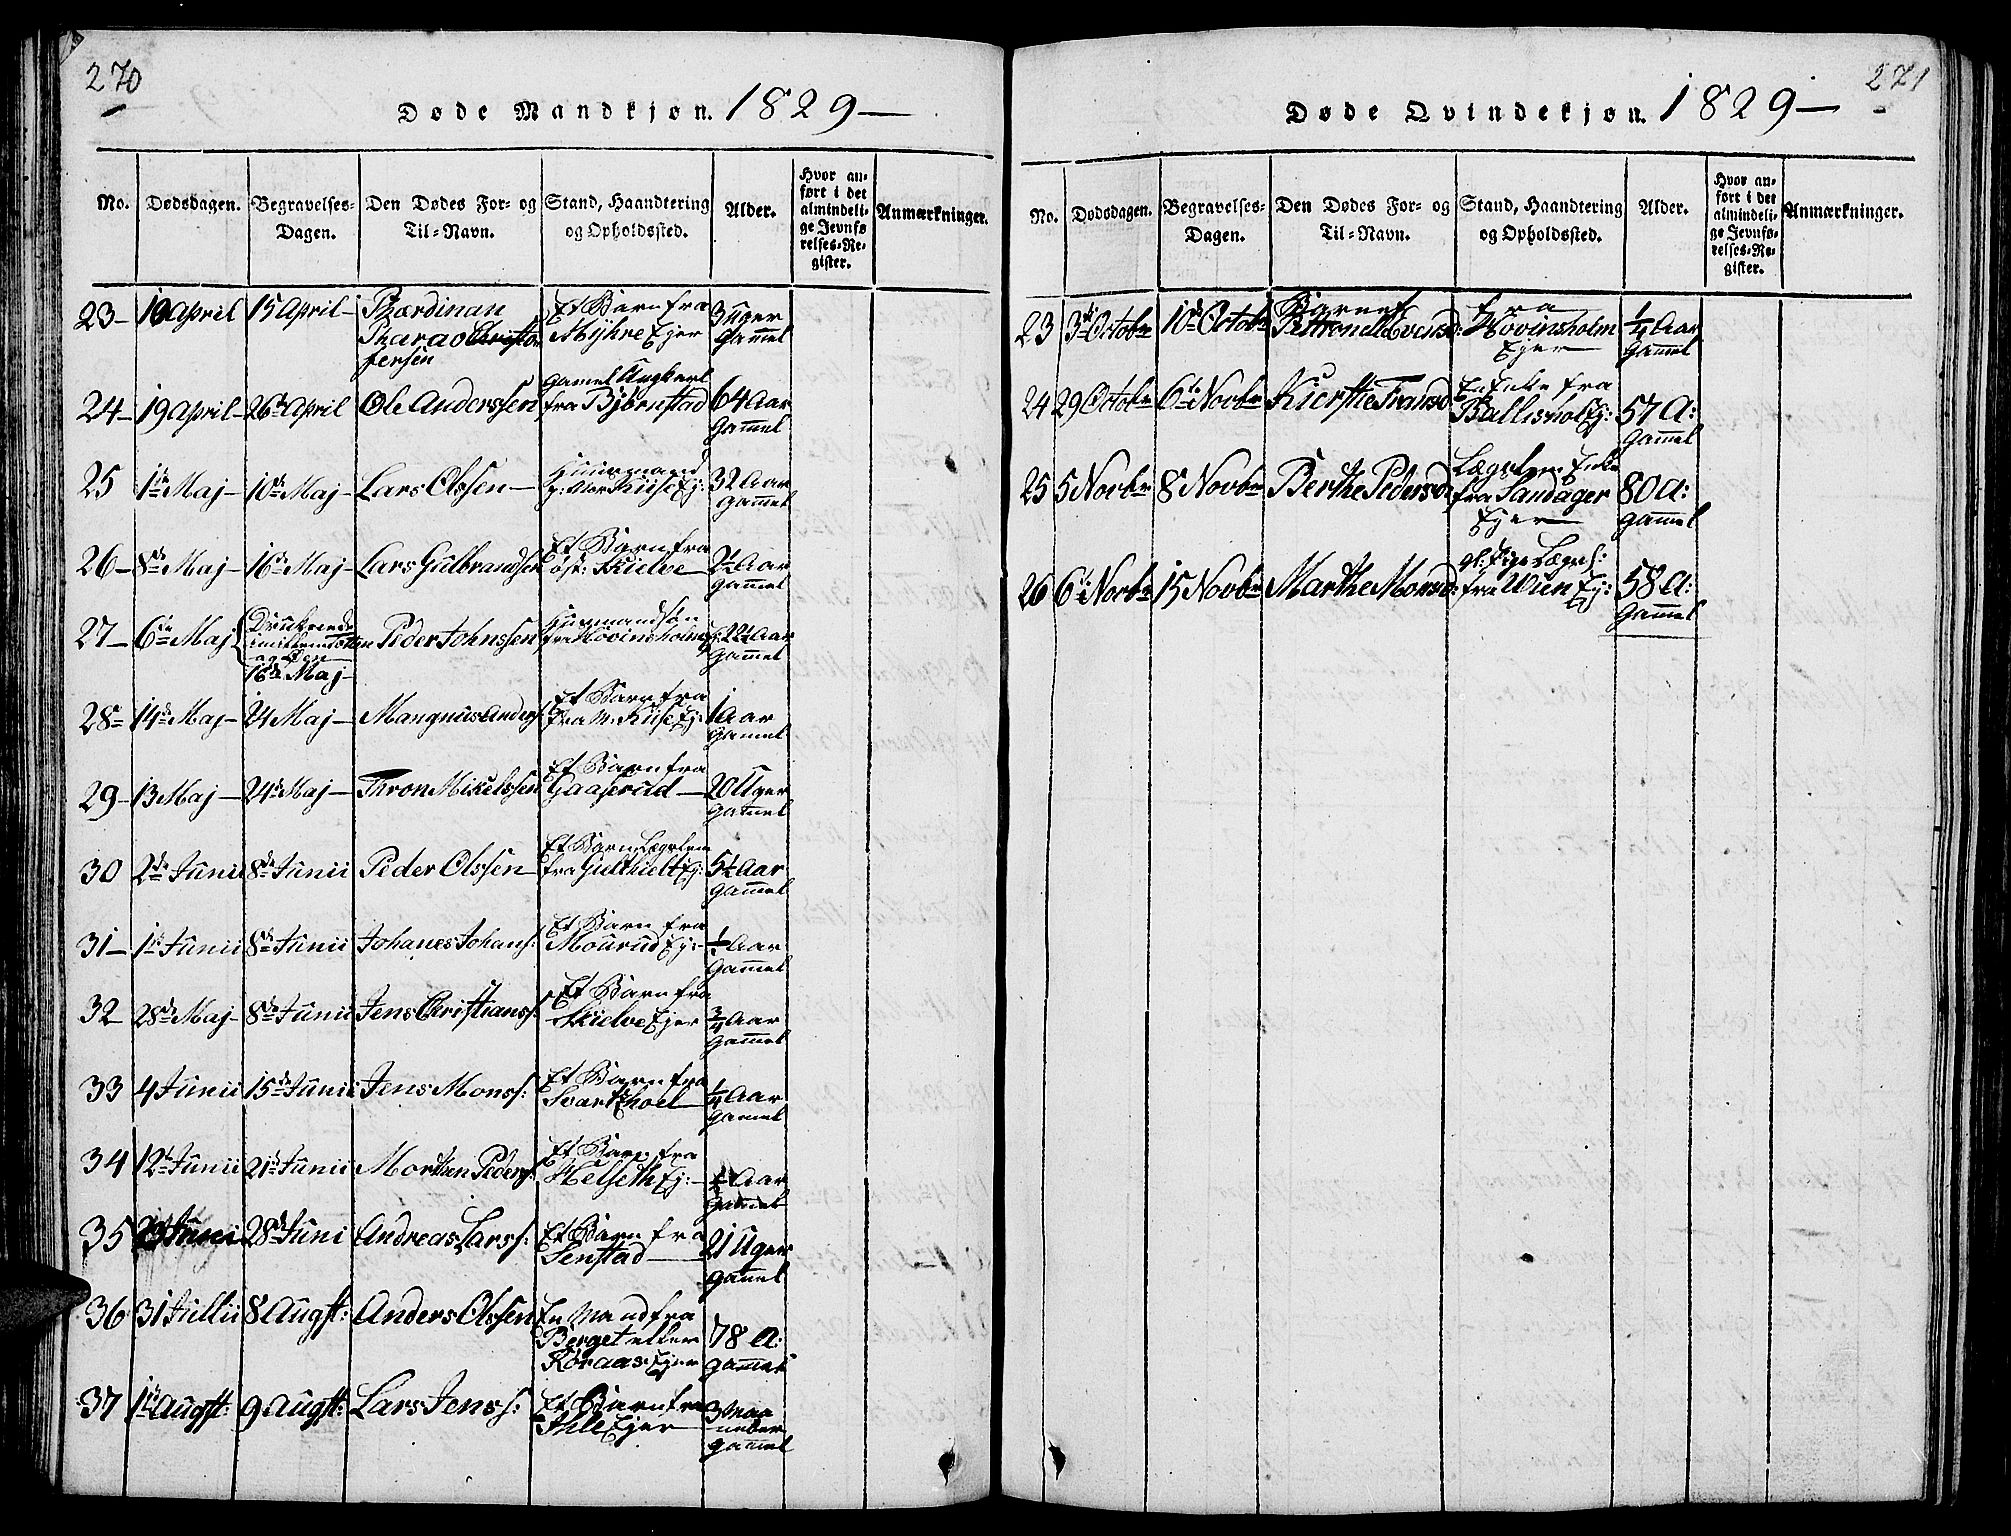 270
Døde Mandkjøn. 1829 —
No. Dødsdagen. Begravelses-Dagen. Den Dødes For- og Til-Navn. Stand, Haandtering og Opholdssted. Alder. Hvor anført i det almindelige Jevnførelses-Register. Anmærkninger.
23 — 10 April 15 April — Ferdinan
Pharao Christo
fersen
Et Barn fra
Myhre Ejer
3 Uger
Gamel
24 — 19 April — 26 April Ole Anderssen
Gamel Ungkarl
fra Bjørnstad
64 Aar
Gamel
25 1ste Maj — 10de Maj — Lars Olssen —
Huusmand
Kiise Ej:
32 Aar
gamel
26 — 8de Maj — 16de Maj — Lars Gulbrandsen
Et Barn fra
øst: Skielve —
2½ Aar
gamel
27 — 6te Maj
16de Maj —
Peder Johnssen
Huusmandsøn
fra Hovinsholm
22½ Aar
Gamel
28 — 14de Maj — 24 Maj — Mangnus Anders:
Et Barn fra
fra N: Kiise Ej:
1 Aar
gamel
29 — 13 Maj — 24de Maj — Thron Mikelssen
Et Barn fra
Gaaserud —
20 Uger
gamel
30 2den Junii 8de Junii Peder Olssen —
Et Barn Lægslem
fra Gulthielt Ej:
5½ Aar
gamel
31 — 1ste Junii 8de Junii Johanes Johans:
Et Barn fra
Mourud Ej: —
½ Aar
gamel
32 28de Maj — 8de Junii Jens Christianss:
Et Barn fra
Skielve Ejer
¾ Aar
gamel
33 4 Junii 15de Junii Jens Monss:
Et Barn fra
Svartshoel —
¼ Aar
gamel
34 12te Junii 21de Junii Morthen Peders:
Et Barn fra
Helseth Ej: —
½ Aar
gamel
35 Junii 28de Juni Andreas Larss:
Et Barn fra
Senstad —
21 Uger
gamel
36 31 Jullii 8 Augst: Anders Olssen
En Mand fra
Berget eller
Røraas Ejer
78 A:
gamel
37 1ste Augst: 9 Augst: Lars Jenss:
Et Barn fra
Ihle Ejer —
3 Maa
neder
gamel
271
Døde Qvindekjøn. 1829 —
No. Dødsdagen. Begravelses-Dagen. Den Dødes For- og Til-Navn. Stand, Haandtering og Opholdssted. Alder. Hvor anført i det almindelige Jevnførelses-Register. Anmærkninger.
23 3de Octobr 10de Octobr Barnet
Petronelle Evensd:
fra
Hovinsholm
Ejer
¼ Aar
gamel
24 29 Octobr 6te Novbr Kiersthe Fransd
En Enke fra
Ballishol Ej:
57 A:
gamel
25 5 Novbr 8 Novbr Berthe Pedersd:
Lægslem Enke
fra Sandager
Ejer
80 A:
gamel
26 6te Novbr 15 Novbr Marthe Monsd:
gl: Pige Lægsl:
fra Wien Ej:
58 A:
gamel